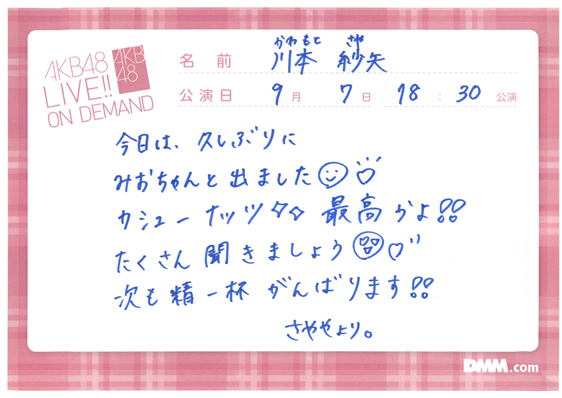 AKB48
LIVE!!
ON DEMAND
AKB
48
かわもと さや
名前 川本 紗矢
公演日 9月 7日 18:30 公演
今日は、久しぶりに
みおちゃんと出ました
カシューナッツ 最高かよ!!
たくさん聞きましょう
次も精一杯 がんばります!!
さややより。
DMM.com